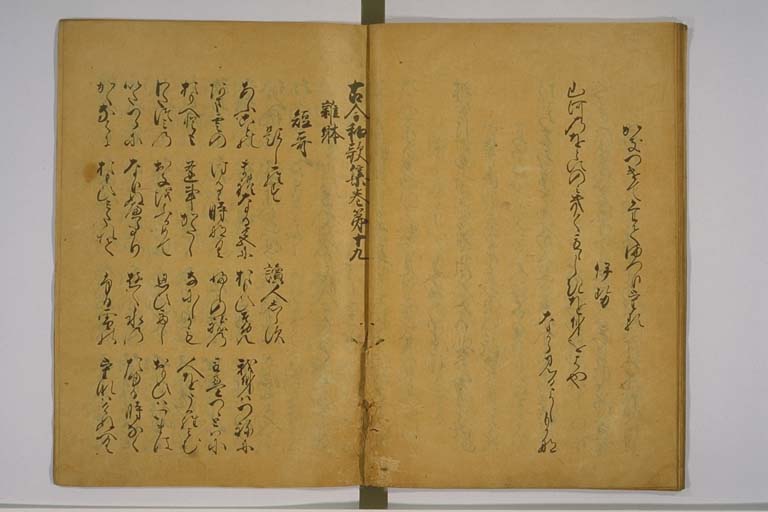 かきつけてたてまつりける
伊勢
山河のをとにのみきくもゝしきを身をはや
なから見るよしもかな
古今和歌集巻第十九
雜躰
短哥
題しらす 讀人しらす
あふことの まれなる色に おもひそめ 我身はつねに
あま雲の はるゝ時なく ふしのねの もえつゝとはに
おもへとも 逢事かたし なにしかも 人をうらみむ
わたつみの おきをふかめて 思ひてし おもひはいまは
いたつらに なりぬへらなり ゆく水の たゆる時なく
かくなわに おもひみたれて ふる雪の けなはけぬへく